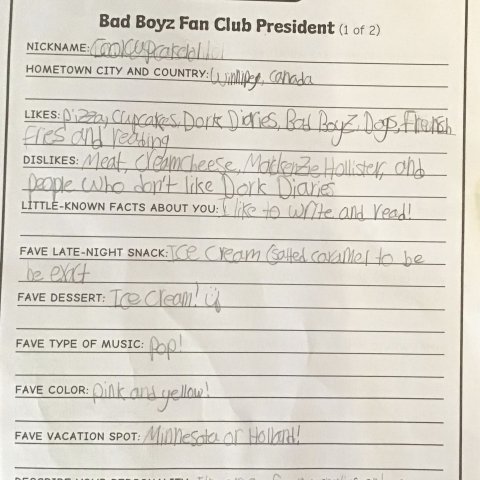 Bad Boyz Fan Club President (1 of 2)
NICKNAME:
HOMETOWN CITY AND COUNTRY: Winnipeg, Canada
LIKES: Pizza, Cupcakes, Dork Diaries, Bad BoyZ, Dogs, French
fries and reading
DISLIKES: Meat, Creamcheese, Mackenzie Hollister, and
people who don't like Dork Diaries
LITTLE-KNOWN FACTS ABOUT YOU: I like to write and read!
FAVE LATE-NIGHT SNACK: Ice Cream (salted caramel to be
be exact
FAVE DESSERT: Ice Cream!
FAVE TYPE OF MUSIC: Pop!
FAVE COLOR: pink and yellow!
FAVE VACATION SPOT: Minnesota or Holland!